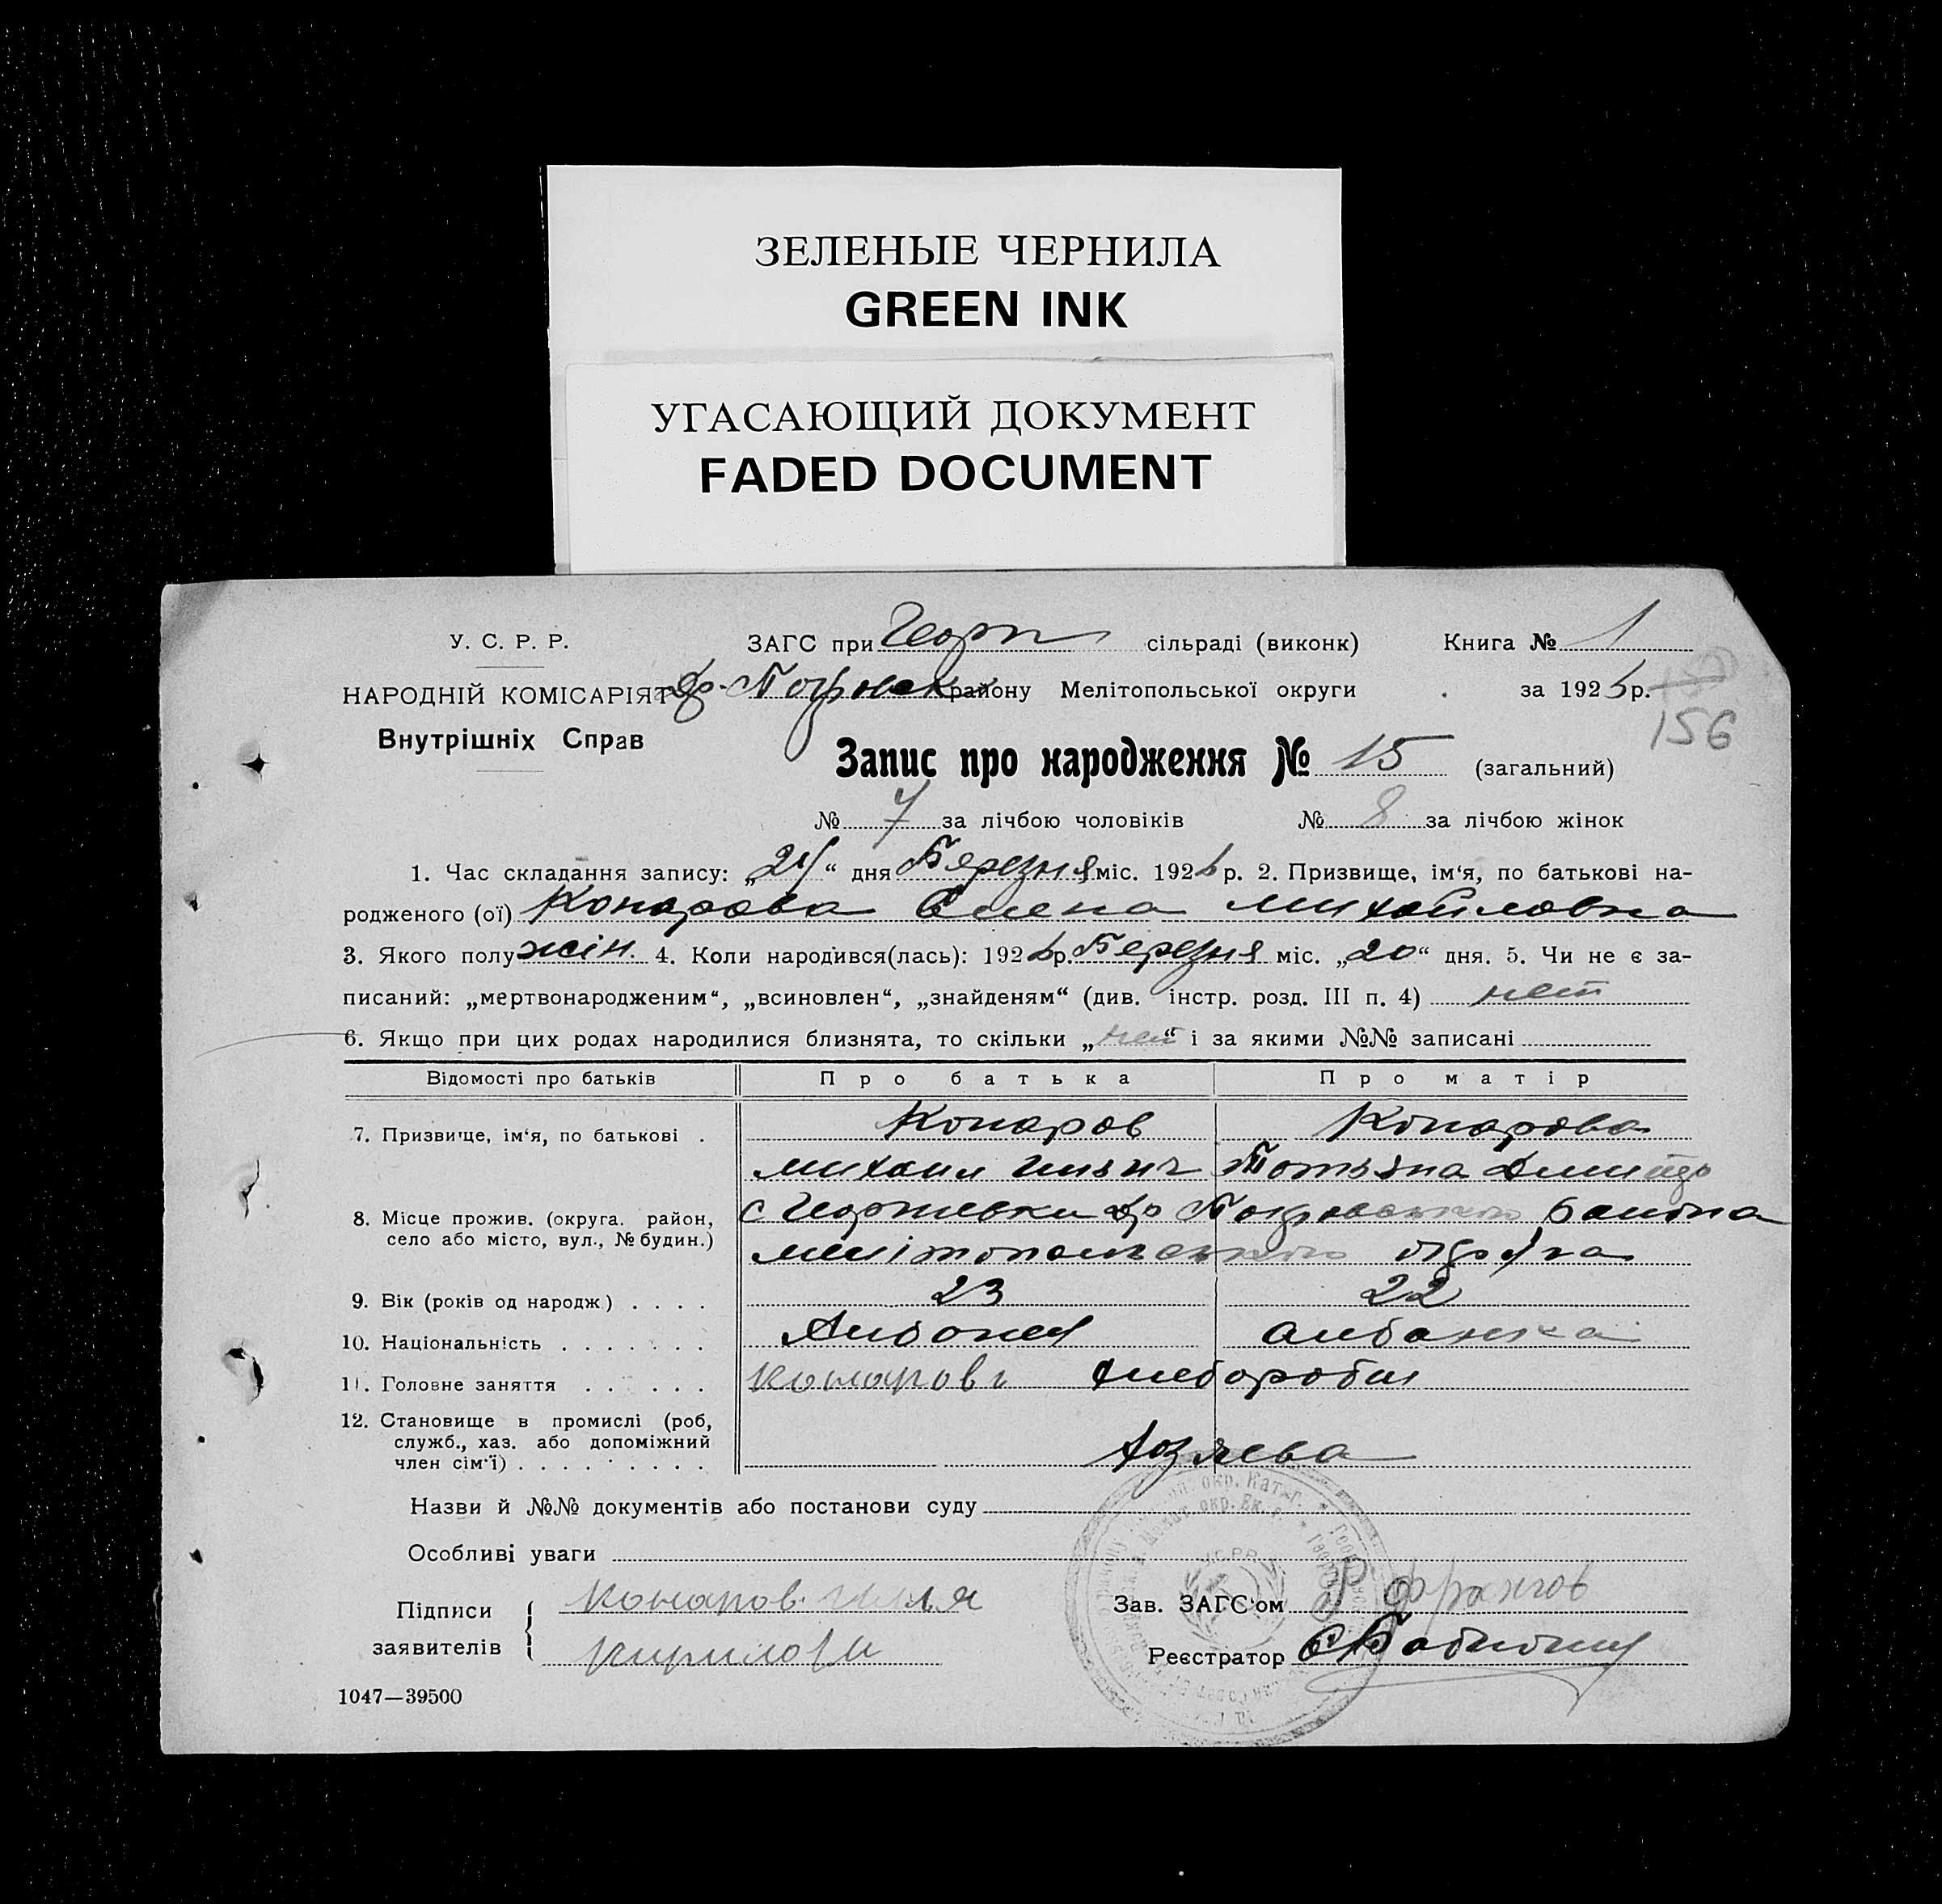 ЗЕЛЕНЫЕ ЧЕРНИЛА
GREEN INK
УГАСАЮЩИЙ ДОКУМЕНТ
FADED DOCUMENT
У. С. Р. Р.
ЗАГС при Георг сільраді (виконк) Книга № 1
НАРОДНІЙ КОМІСАРІЯТ
району Мелітопольської округи за 1926 р.
156
Внутрішніх Справ
Запис про народження № 15 (загальний)
№ 7 за лічбою чоловіків № 8 за лічбою жінок
1. Час складання запису: „24“ дня Березня міс. 1926 р. 2. Призвище, ім‘я, по батькові на-
родженого (ої) Конарова Елена Михайловна
3. Якого полу жін. 4. Коли народився(лась): 1926 р. Березня міс. „20“ дня. 5. Чи не є за-
писаний: „мертвонародженим“, „всиновлен“, „знайденям“ (див. інстр. розд. III п. 4) нет
6. Якщо при цих родах народилися близнята, то скільки „нет“ і за якими №№ записані
Відомості про батьків Про батька Про матір
7. Призвище, ім‘я, по батькові . Конаров Конарова
Михаил Ильич Татьяна Дмитр
8. Місце прожив. (округа. район, село або місто, вул., № будин.) с Георгиевки
Мелітопольського округа
9. Вік (років од народж) . . . . 23 22
10. Національність . . . . . . . Албанец албанка
11. Головне заняття . . . . . хлебороби
12. Становище в промислі (роб,
служб., хаз. або допоміжний
член сім‘ї) . . . . . . . . .
Назви й №№ документів або постанови суду
Особливі уваги
Підписи Конаров Илья Зав. ЗАГС‘ом
заявителів Реєстратор
1047—39500